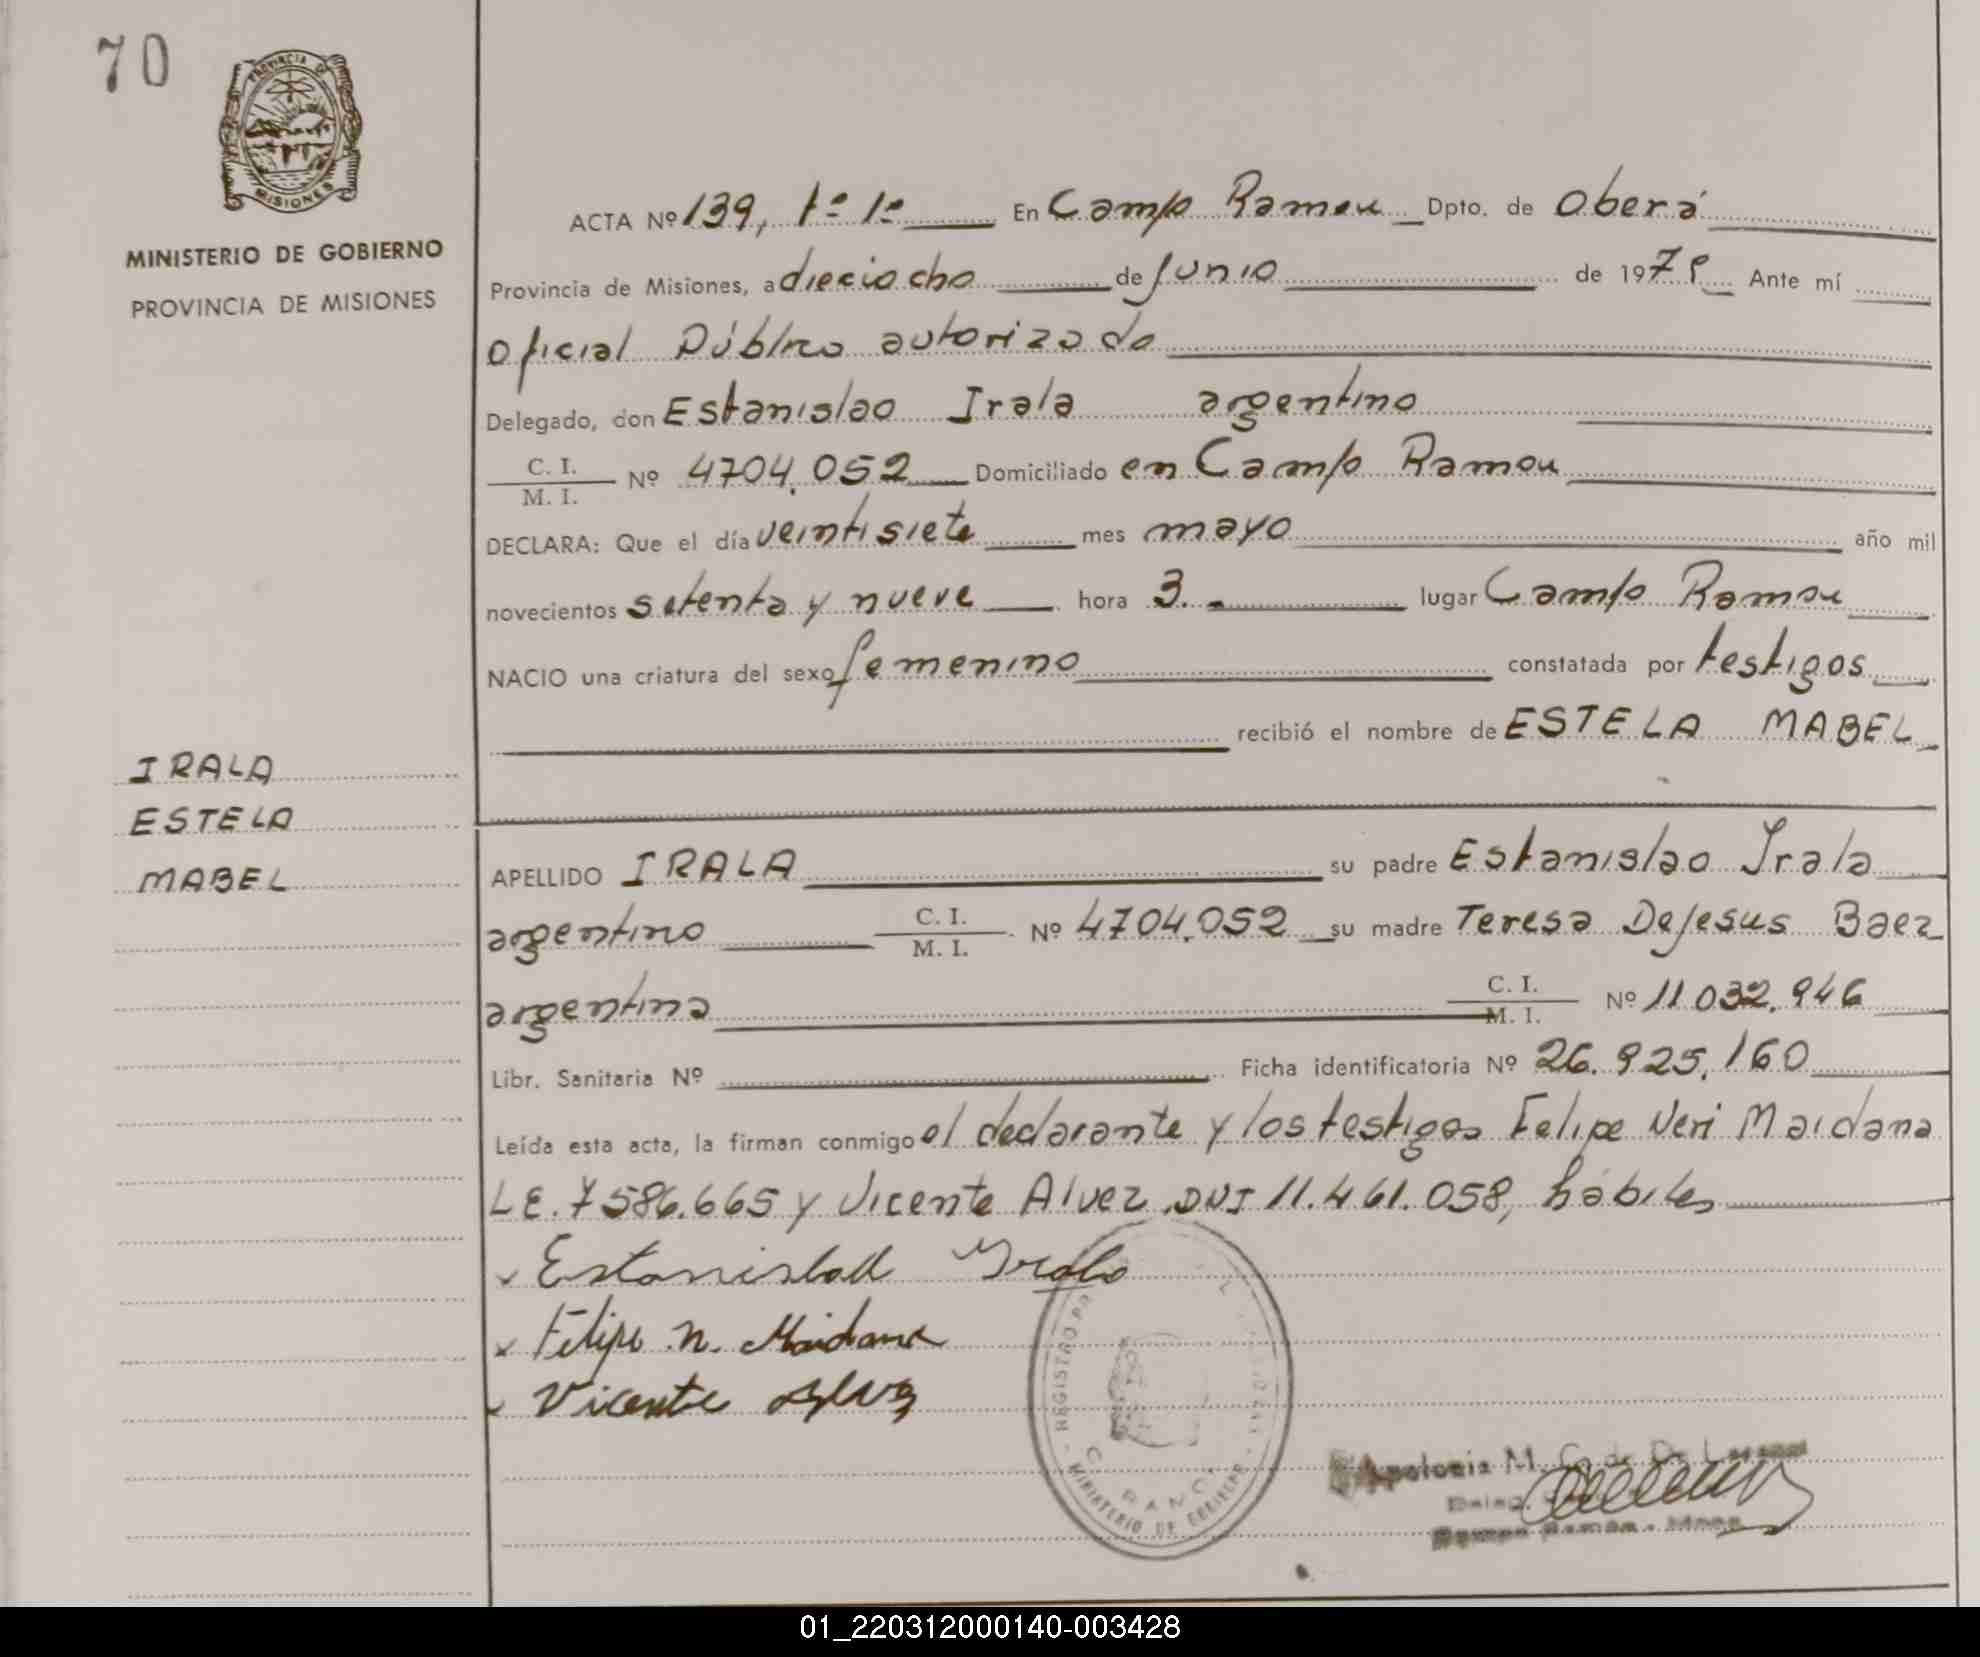 70
PROVINCIA DE
MISIONES
MINISTERIO DE GOBIERNO
PROVINCIA DE MISIONES
ACTA Nº 139, tº 1º En Campo Ramon Dpto. de Oberá
Provincia de Misiones, a dieciocho de Junio de 1979 Ante mí
Oficial Público autorizado
Delegado, don Estanislao Irala argentino
C. I.
M. I. Nº 4704.052 Domiciliado en Campo Ramon
DECLARA: Que el día veintisiete mes mayo año mil
novecientos setenta y nueve hora 3.- lugar Campo Ramon
NACIO una criatura del sexo femenino constatada por testigos
recibió el nombre de ESTELA MABEL
IRALA
ESTELA
MABEL
APELLIDO IRALA su padre Estanislao Irala
argentino C. I.
M. I. Nº 4704.052 su madre Teresa DeJesus Baez
argentina C. I.
M. I. Nº 11032.946
Libr. Sanitaria Nº Ficha identificatoria Nº 26.925.160
Leída esta acta, la firman conmigo el declarante y los testigos Felipe Neri Maidana
LE. 7586.665 y Vicente Alvez DNI 11.461.058, hábiles
x Estanislao Irala
x Felipe N. Maidana
x Vicente Alvez
REGISTRO
MINISTERIO DE GOBIERNO
01_220312000140-003428